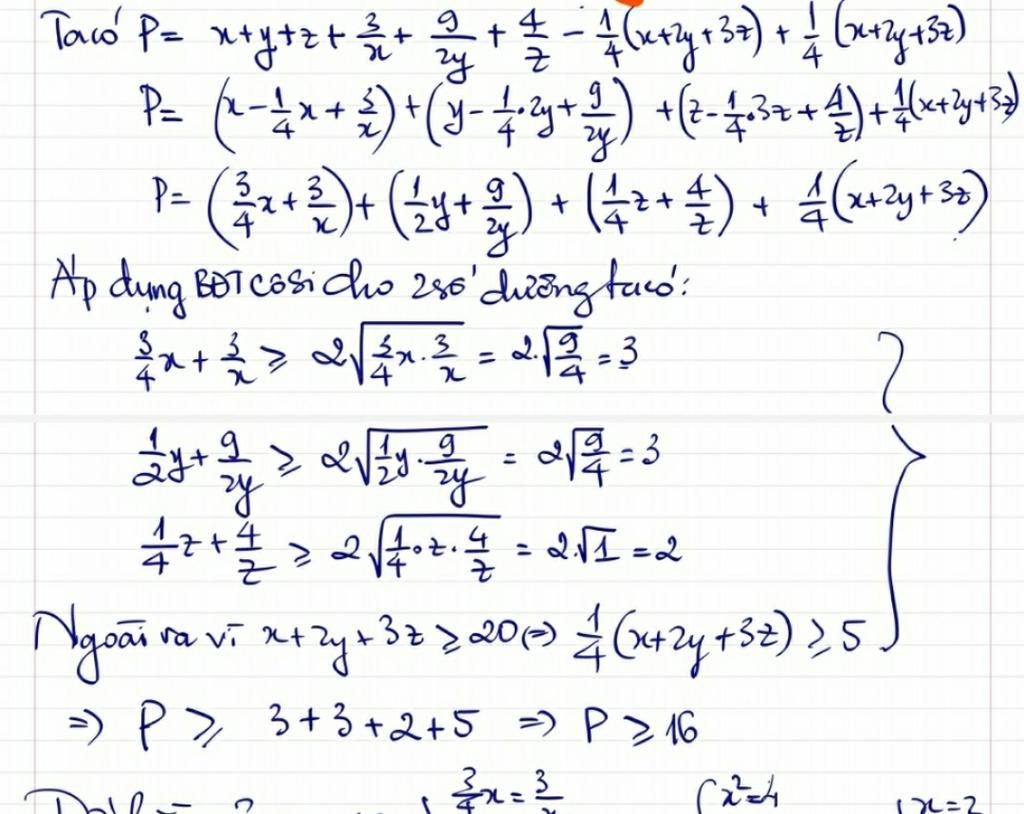 Ta có P = x+y+z + 3/x + 9/2y + 4/z - 1/4(x+2y+3z) + 1/4(x+2y+3z)
P = (x - 1/4x + 3/x) + (y - 1/4.2y + 9/2y) + (z - 1/4.3z + 4/z) + 1/4(x+2y+3z)
P = (3/4x + 3/x) + (1/2y + 9/2y) + (1/4z + 4/z) + 1/4(x+2y+3z)
Áp dụng BĐT côsi cho 2 số dương ta có:
3/4x + 3/x ≥ 2√(3/4x . 3/x) = 2.√(9/4) = 3
1/2y + 9/2y ≥ 2√(1/2y . 9/2y) = 2√(9/4) = 3
1/4z + 4/z ≥ 2√(1/4.z.4/z) = 2.√1 = 2
Ngoài ra vì x+2y+3z ≥ 20 (=) 1/4(x+2y+3z) ≥ 5
=) P ≥ 3+3+2+5 =) P ≥ 16
3/4x = 3/x { x²=4 { x=2